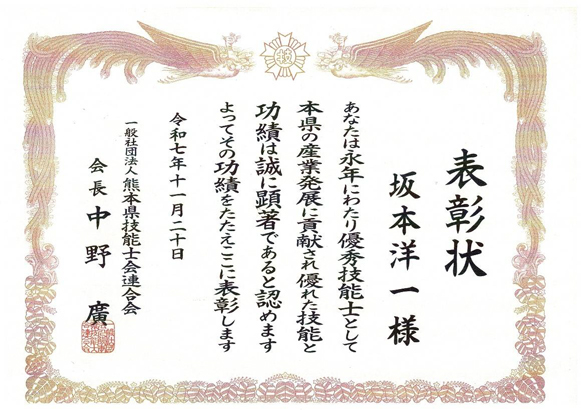 表彰状
坂本洋一様
あなたは永年にわたり優秀技能士として
本県の産業発展に貢献され優れた技能と
功績は誠に顕著であると認めます
よってその功績をたたえここに表彰します
令和七年十一月二十日
一般社団法人熊本県技能士会連合会
会長 中野 廣